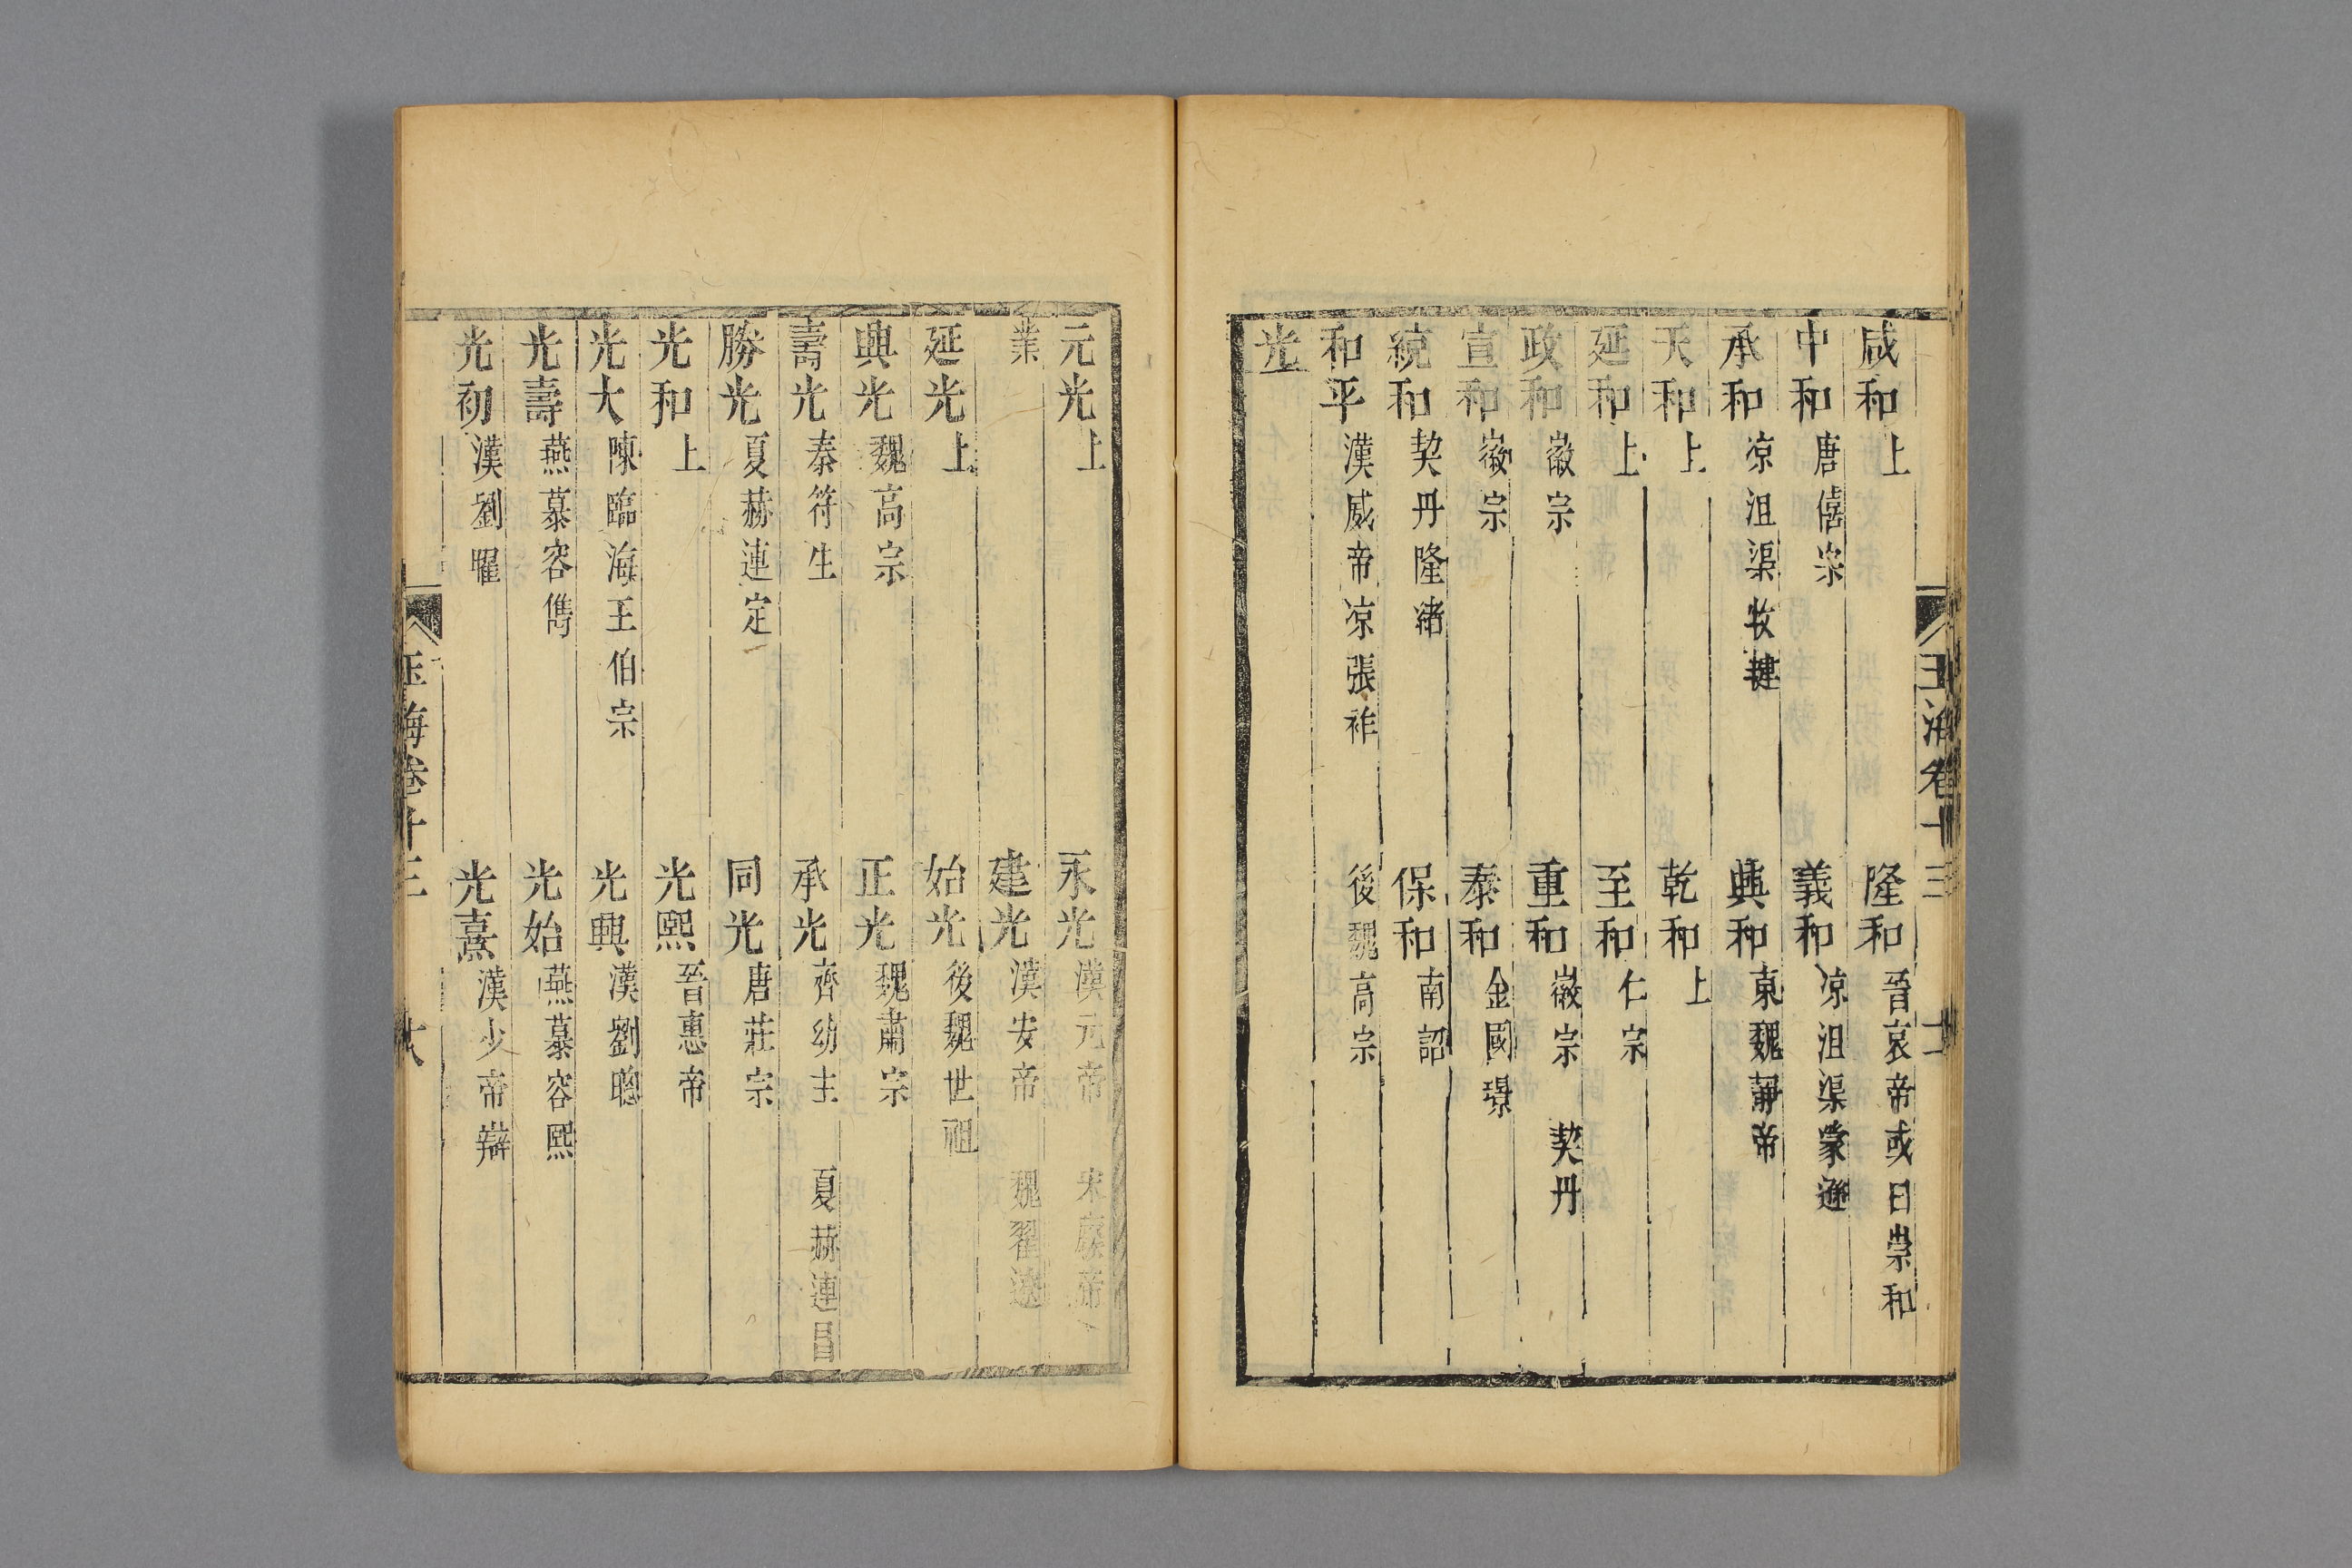 咸和上 隆和晉哀帝或曰崇和
中和唐僖宗 義和凉沮渠蒙遜
承和凉沮渠牧犍 興和東魏靜帝
天和上 乾和上
延和上 至和仁宗
政和徽宗 重和徽宗 契丹
宣和徽宗 泰和金國璟
統和契丹隆緒 保和南詔
和平漢威帝凉張祚 後魏高宗
光
元光上 永光漢元帝 宋廢帝
業 建光漢安帝 魏翟遼
延光上 始光後魏世祖
興光魏高宗 正光魏肅宗
壽光秦符生 承光齊幼主 夏赫連昌
勝光夏赫連定 同光唐莊宗
光和上 光熙晉惠帝
光大陳臨海王伯宗 光興漢劉聰
光壽燕慕容儁 光始燕慕容熙
光初漢劉曜 光熹漢少帝辯
玉海卷十三